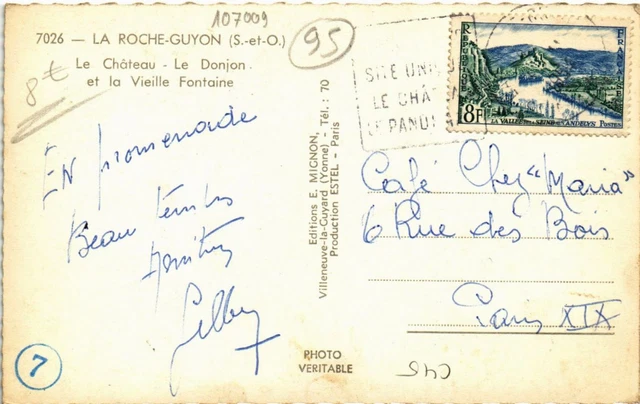 107009
95
7026 — LA ROCHE-GUYON (S.-et-O.)
Le Château - Le Donjon
et la Vieille Fontaine
8€
SITE UNI
LE CHÂT
LE PANO
REPUBLIQUE
FRANÇAISE
8F
LA VALLÉE DE LA SEINE AUX ANDELYS POSTES
EN promenade
Beau temps
Amitiés
Editions E. MIGNON,
Villeneuve-la-Guyard (Yonne) - Tél. : 70
Production ESTEL - Paris
Café Chez "Maria"
6 Rue des Bois
Paris XIX
7
PHOTO
VERITABLE